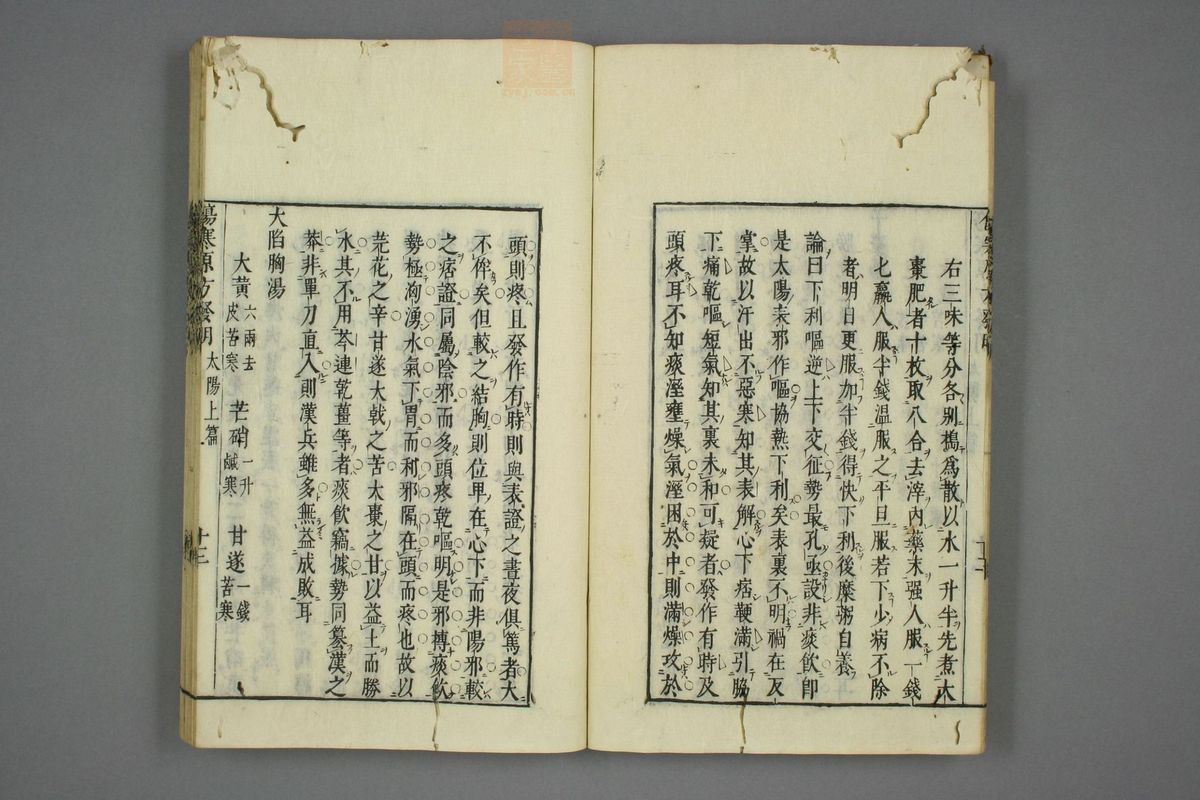 右三味等分各别擣爲散以水一升半先煮大
棗肥者十枚取八合去滓內藥末强人服一錢
七羸人服半錢溫服之平旦服若下少病不除
者明日更服加半錢得快下利後糜粥自養
論曰下利嘔逆上下交征勢最孔亟設非痰飲卽
是太陽表邪作嘔協熱下利矣表裏不明禍在反
掌故以汗出不惡寒知其表解心下痞鞕滿引脇
下痛乾嘔短氣知其裏未和可疑者發作有時及
頭疼耳不知痰溼壅燥氣溼困於中則滿燥攻於
頭則疼且發作有時則與表證之晝夜俱篤者大
不侔矣但較之結胸則位卑在心下而非陽邪較
之痞證同屬陰邪而多頭疼乾嘔明是邪搏痰飲
勢極洶湧水氣下胃而利邪隔在頭而疼也故以
芫花之辛甘遂大戟之苦大棗之甘以益土而勝
水其不用芩連乾薑等者痰飲竊據勢同篡漢之
莽非單刀直入則漢兵雖多無益成敗耳
大陷胸湯
大黃 六兩去皮苦寒 芒硝 一升鹹寒 甘遂 一錢苦寒
傷寒原方發明 太陽上篇 十三